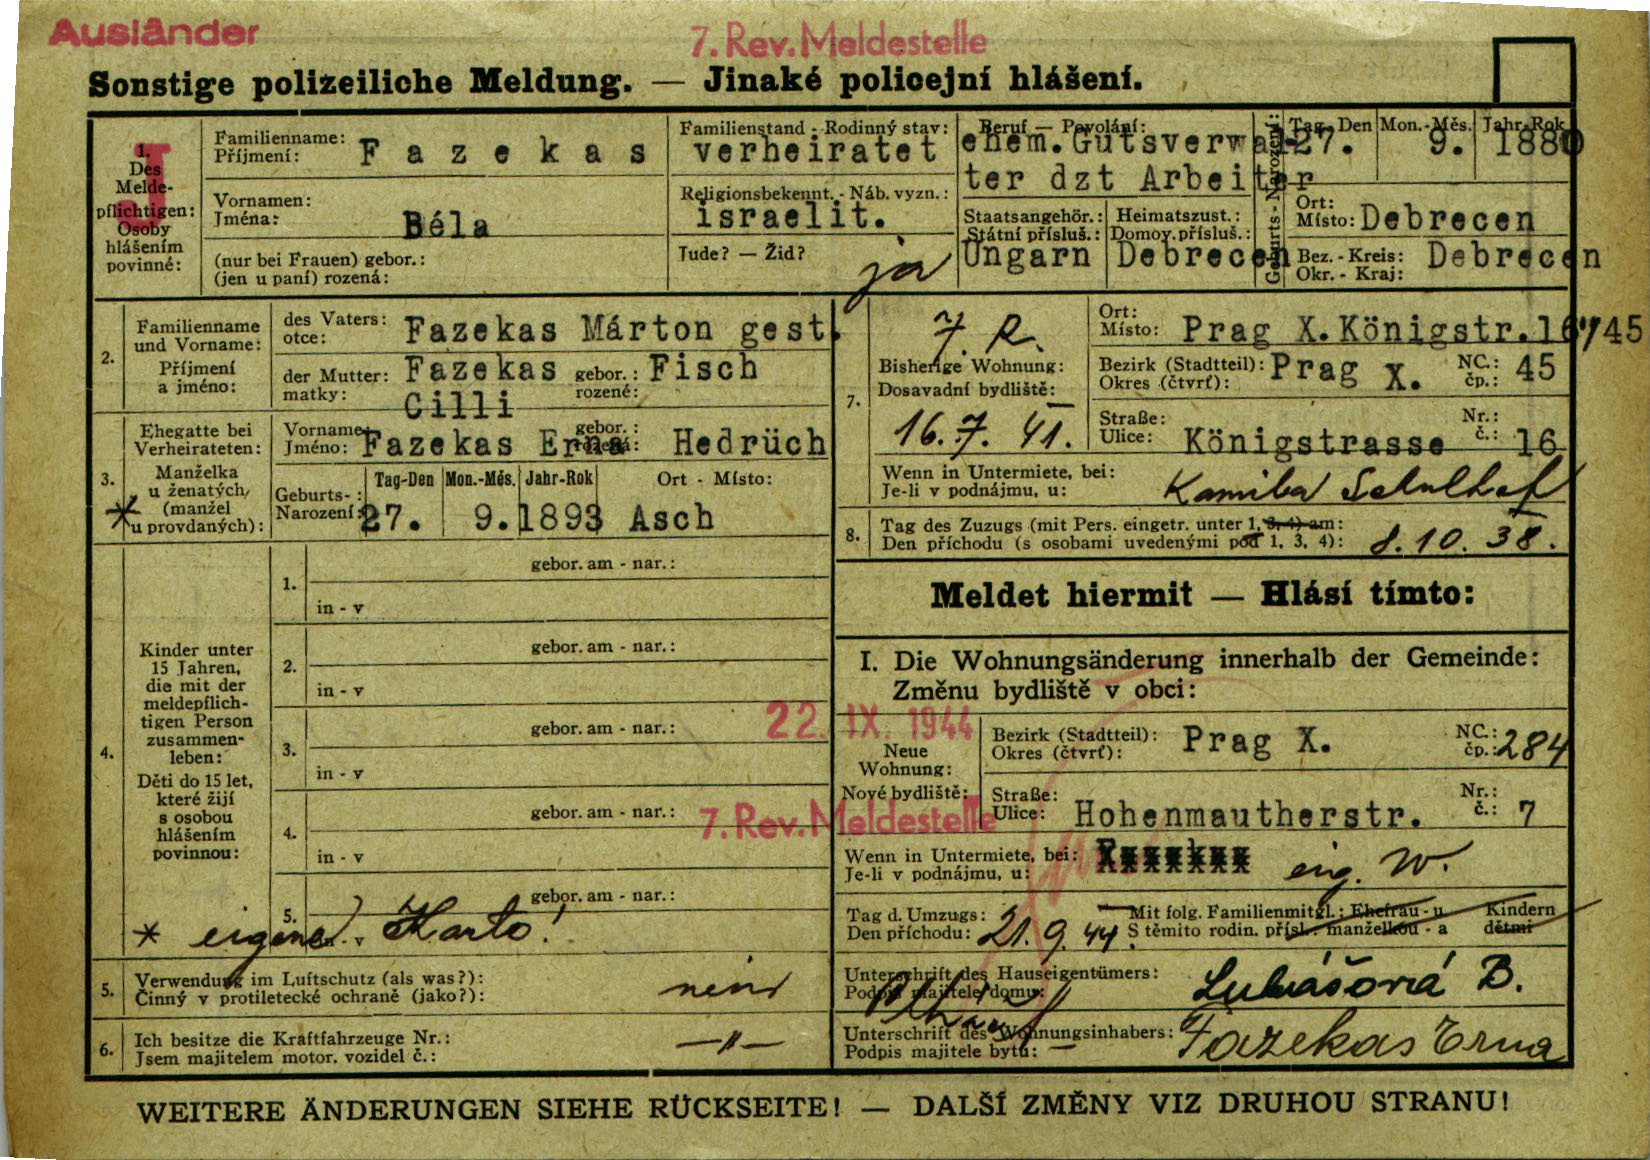 Ausländer
7. Rev. Meldestelle
Sonstige polizeiliche Meldung. — Jinaké policejní hlášení.
J
1.
Des
Melde-
pflichtigen:
Osoby
hlášením
povinné:
Familienname:
Příjmení:
Fazekas
Vornamen:
Jména:
Béla
(nur bei Frauen) gebor.:
(jen u paní) rozená:
Familienstand - Rodinný stav:
verheiratet
Religionsbekennt. - Náb. vyzn.:
israelit.
Jude? — Žid?
ja
Beruf — Povolání:
ehem. Gutsverwal-
ter dzt Arbeiter
Staatsangehör.:
Státní přísluš.:
Ungarn
Heimatszust.:
Domov. přísluš.:
Debrecen
Geburts - Narození:
Tag - Den Mon. - Měs. Jahr-Rok
27. 9. 1880
Ort:
Místo: Debrecen
Bez. - Kreis: Debrecen
Okr. - Kraj:
2.
Familienname
und Vorname:
Příjmení
a jméno:
des Vaters:
otce:
Fazekas Márton gest.
der Mutter:
matky:
Fazekas gebor.: Fisch
rozené:
Cilli
3.
Ehegatte bei
Verheirateten:
Manželka
u ženatých,
(manžel
u provdaných):
*
Vorname
Jméno: Fazekas Erna gebor.: Hedrüch
Geburts- :
Narození:
Tag-Den Mon.-Měs. Jahr-Rok Ort - Místo:
27. 9. 1893 Asch
4.
Kinder unter
15 Jahren,
die mit der
meldepflich-
tigen Person
zusammen-
leben:
Děti do 15 let,
které žijí
s osobou
hlášením
povinnou:
1. gebor. am - nar.:
in - v
2. gebor. am - nar.:
in - v
3. gebor. am - nar.:
in - v
4. gebor. am - nar.:
in - v
5. gebor. am - nar.:
in - v
* eigene Karte!
5.
Verwendung im Luftschutz (als was?):
Činný v protiletecké ochraně (jako?):
nein
6.
Ich besitze die Kraftfahrzeuge Nr.:
Jsem majitelem motor. vozidel č.:
—"—
7.
7. R.
Bisherige Wohnung:
Dosavadní bydliště:
16. 7. 41.
Ort:
Místo: Prag X. Königstr. 16/45
Bezirk (Stadtteil): Prag X. NC.: 45
Okres (čtvrť): čp.:
Straße: Nr.:
Ulice: Königstrasse č.: 16
Wenn in Untermiete, bei:
Je-li v podnájmu, u:
Kamila Schulhof
8.
Tag des Zuzugs (mit Pers. eingetr. unter 1, 3, 4) am:
Den příchodu (s osobami uvedenými pod 1, 3, 4):
8. 10. 38.
Meldet hiermit — Hlásí tímto:
I. Die Wohnungsänderung innerhalb der Gemeinde:
Změnu bydliště v obci:
22. IX. 1944
Neue
Wohnung:
Nové bydliště:
7. Rev. Meldestelle
Bezirk (Stadtteil): Prag X. NC.: 284
Okres (čtvrť): čp.:
Straße: Nr.:
Ulice: Hohenmautherstr. č.: 7
Wenn in Untermiete, bei:
Je-li v podnájmu, u:
eig. W.
Tag d. Umzugs:
Den příchodu: 21. 9. 44.
Mit folg. Familienmitgl.: Ehefrau - u. Kindern
S těmito rodin. přísl.: manželkou - a dětmi
Unterschrift des Hauseigentümers:
Podpis majitele domu:
Lukášová B.
Unterschrift des Wohnungsinhabers:
Podpis majitele bytu:
Fazekas Erna
WEITERE ÄNDERUNGEN SIEHE RÜCKSEITE! — DALŠÍ ZMĚNY VIZ DRUHOU STRANU!